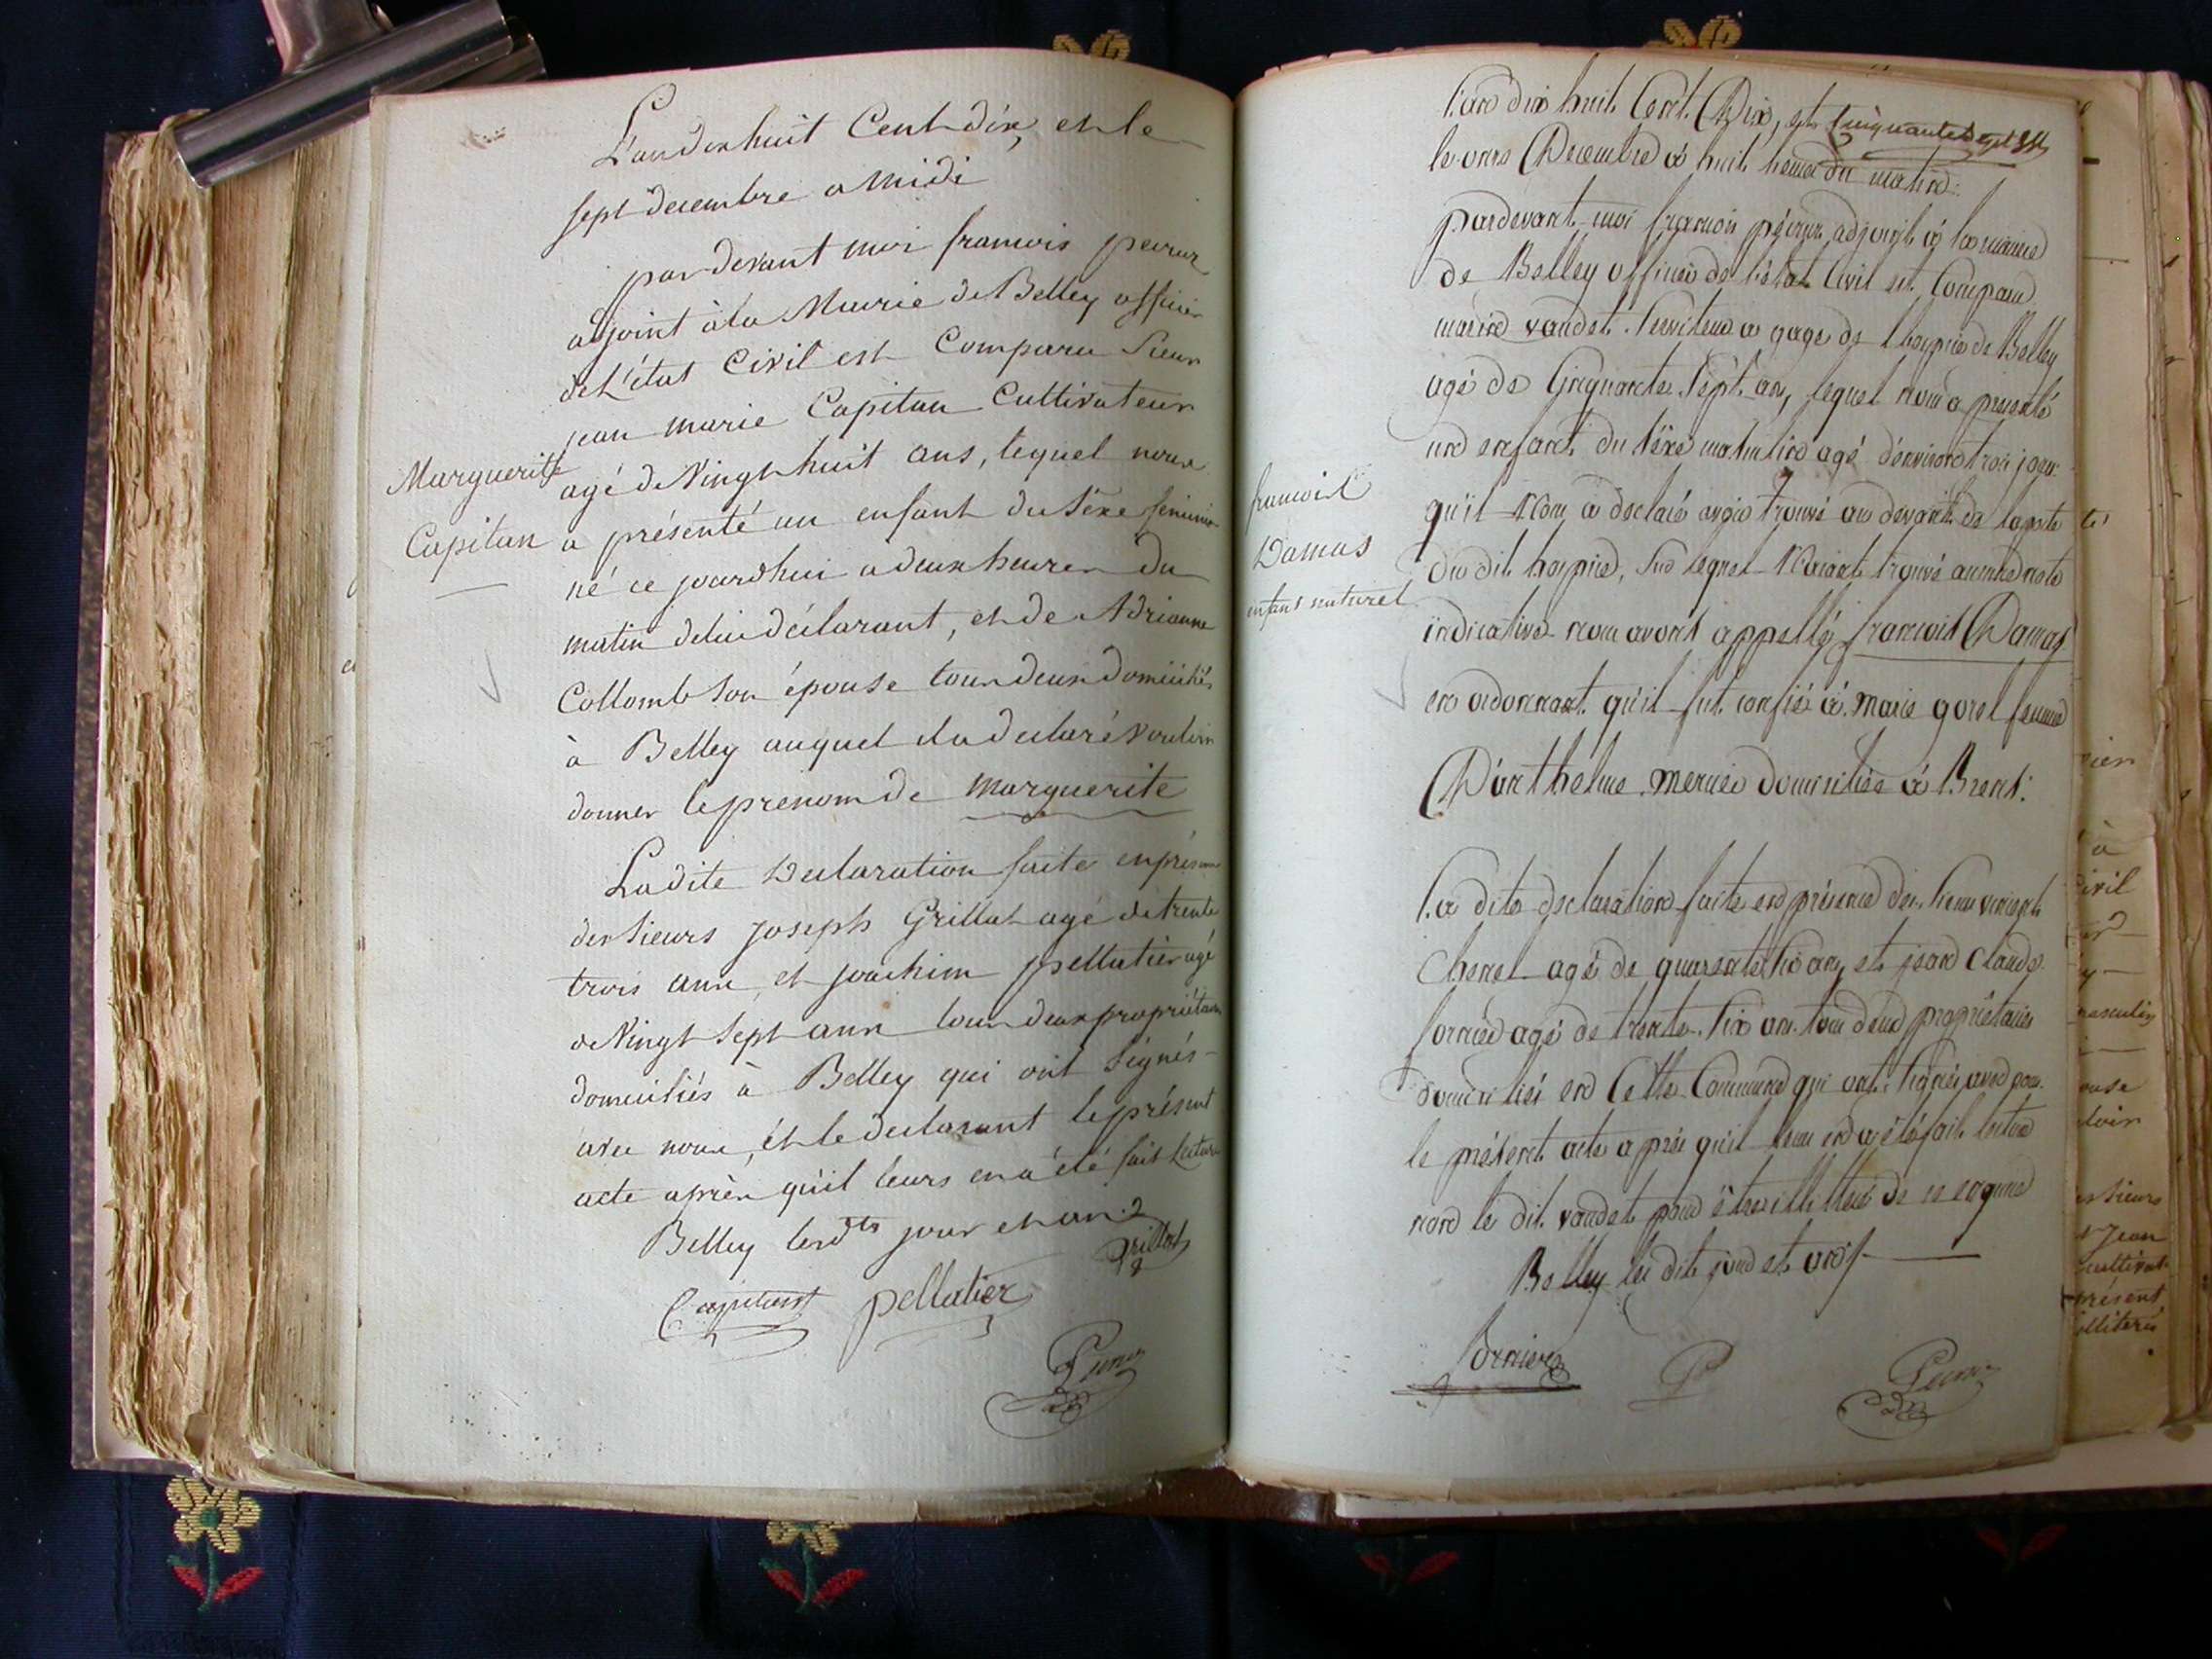 L'an dix huit Cent dix, et le
sept decembre a midi
par devant moi francois peirur
adjoint à la Mairie de Belley officier
de L'état Civil est Comparu Sieur
jean marie Capitan Cultivateur
Marguerite
Capitan
agé de Vingt huit ans, lequel nous
a présenté un enfant du séxe feminin
né ce jourdhui a deux heures du
matin de lui déclarant, et de Adrianne
Collomb son épouse tous deux domiciliés
à Belley auquel il a declaré vouloir
donner le prenom de Marguerite
Ladite Declaration faite en présence
des sieurs joseph Grillat agé de trente
trois ans, et joachim pellatier agé
de Vingt sept ans tous deux propriétaires
domiciliés à Belley qui ont signés
avec nous, et le declarant le présent
acte après qu'il leurs en a été fait Lecture
Belley les dts jour et an.
Grillat
Capitant pellatier
L'an dix huit Cent Dix, et
Cinquante sept
le onze Decembre à huit heures du matin
pardevant moi francois adjoint à la mairie
de Belley officier de l'état Civil est Comparu
vaudet serviteur a gage de l'hospice de Belley
agé de Cinquante Sept ans, lequel nous a presenté
un enfant du séxe masculin agé d'environ trois jours
francois
Damas
enfant naturel
qu'il nous a declaré avoir trouvé au devant de la porte
du dit hospice, sur lequel n'aiant trouvé aucune note
indicative nous avons appellé francois Damas
en ordonnant qu'il fut confié à marie gorel femme
D'anthelme mercier domiciliée à Brens.
La dite declaration faite en présence des sieurs vincent
Chenel agé de quarante six ans, et jean Claude
fornier agé de trente six ans tous deux propriétaires
domiciliés en Cette Commune qui ont signés avec nous
le présent acte après qu'il leur en a été fait lecture
non le dit vaudet pour être illitteré de ce enquis
Belley les dits jour et an
fornier